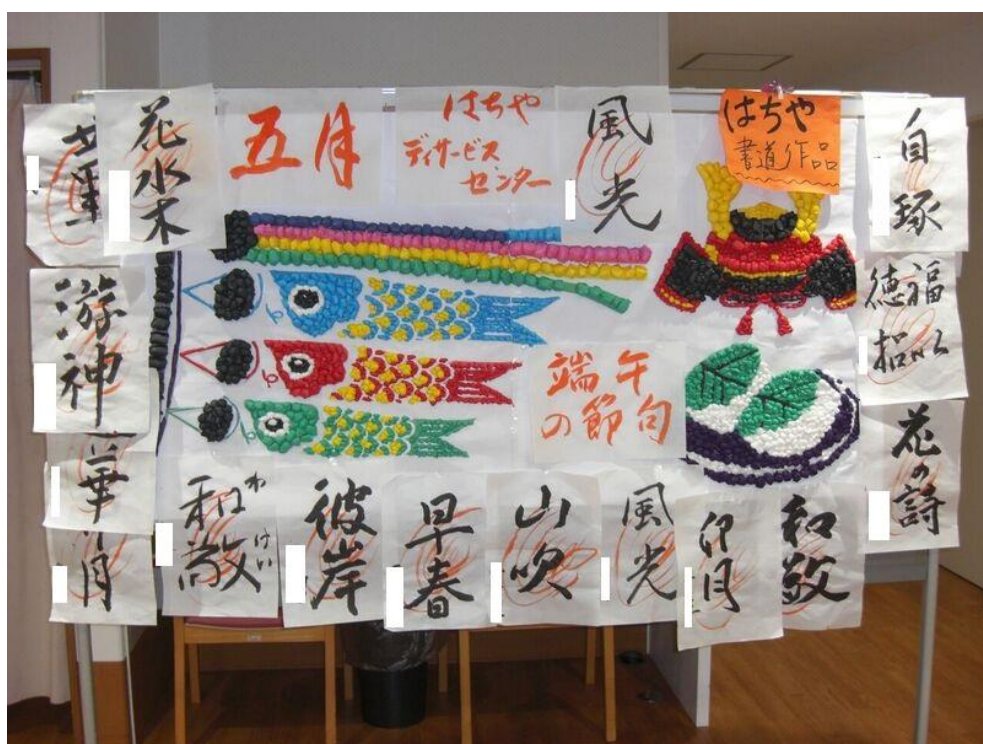 花水木
五月
はちや
デイサービス
センター
風光
はちや
書道作品
自琢
游神
福以
徳招
端午
の節句
花の詩
華
月
和敬
わけい
彼岸
早春
山吹
風光
卯月
和敬